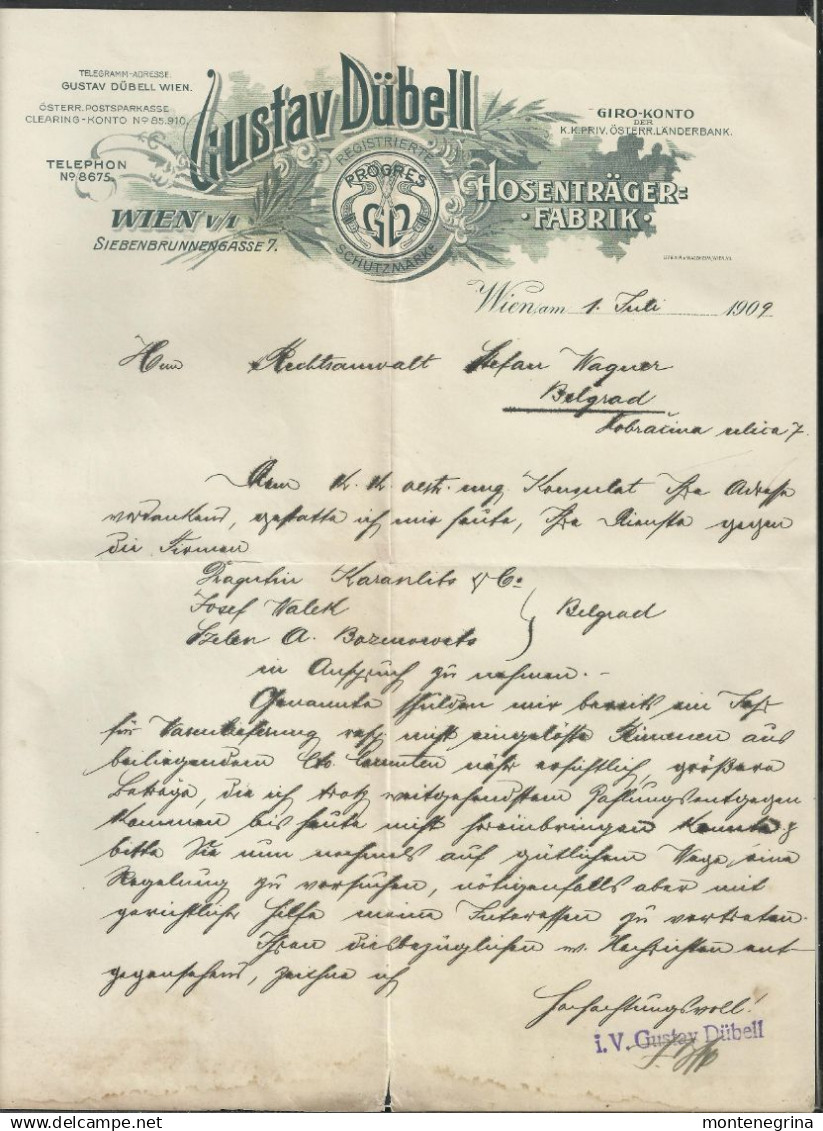 TELEGRAMM-ADRESSE:
GUSTAV DÜBELL WIEN.
ÖSTERR. POSTSPARKASSE
CLEARING-KONTO Nº 85.910.
TELEPHON
Nº 8675.
Gustav Dübell
REGISTRIERTE
PROGRES
GD
SCHUTZMARKE
GIRO-KONTO
DER
K.K. PRIV. ÖSTERR. LÄNDERBANK.
HOSENTRÄGER=
·FABRIK·
WIEN V/1
SIEBENBRUNNENGASSE 7.
Wien, am 1. Juli 1909
Herrn Rechtsanwalt Stefan Wagner
Belgrad
Dobračina ulica 7.
Dem K. K. oestr. ung. Konsulat Ihre Adresse
verdankend, gestatte ich mir heute, Ihre Dienste gegen
die Firmen
Dragutin & Co
Josef Valek
A.
Belgrad
in Anspruch zu nehmen. -
Genannte schulden mir bereits ein Jahr
für Warenlieferung resp. nicht eingelöste Rimessen aus
beiliegendem Cto Correnten näher ersichtlich, größere
Beträge, die ich trotz weitgehendstem Zahlungsentgegen
kommen bis heute nicht hereinbringen konnte &
bitte Sie nun nochmals auf gütlichem Wege eine
Regelung zu versuchen, nötigenfalls aber mit
gerichtlicher Hilfe meine Interessen zu vertreten.
Ihren diesbezüglichen w. Nachrichten ent-
gegensehend, zeichne ich
Hochachtungsvoll!
i.V. Gustav Dübell
montenegrina